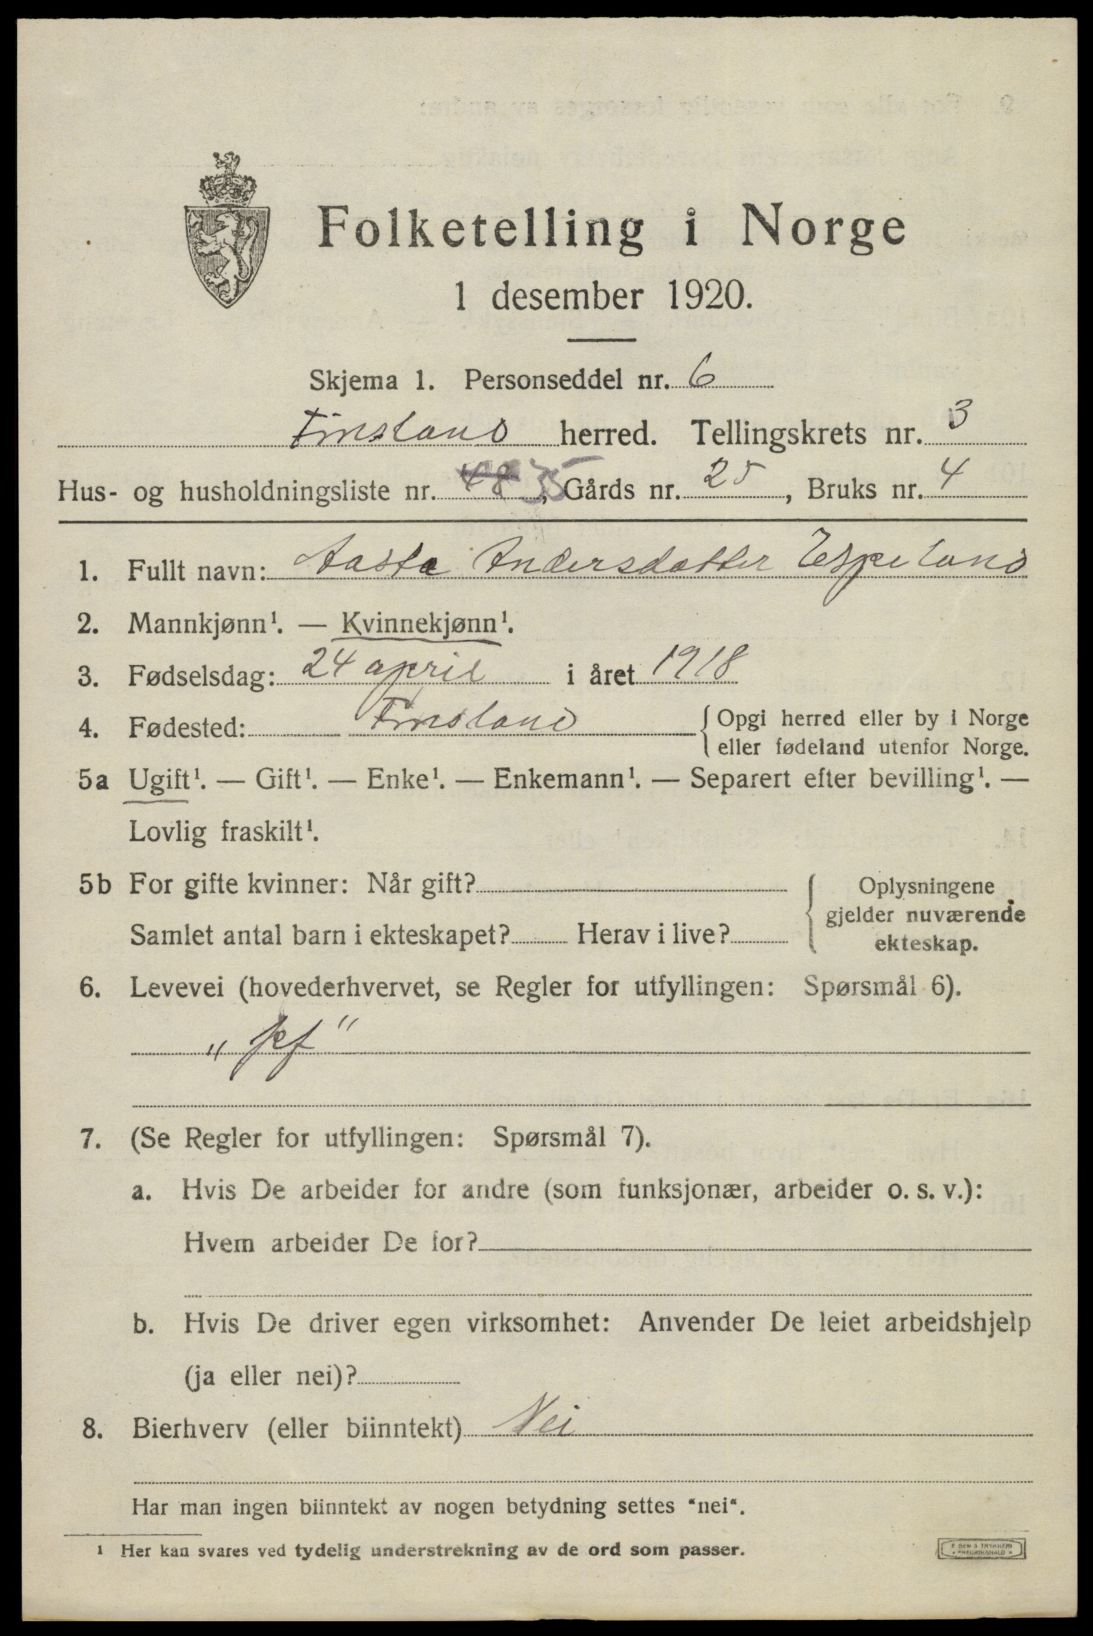 Folketelling i Norge
1 desember 1920.
Skjema 1. Personseddel nr. 6
Finsland herred. Tellingskrets nr. 3
Hus- og husholdningsliste nr. 48 35, Gårds nr. 25, Bruks nr. 4
1. Fullt navn: Aasta Andersdatter Espeland
2. Mannkjønn¹. — Kvinnekjønn¹.
3. Fødselsdag: 24 april i året 1918
4. Fødested: Finsland {Opgi herred eller by i Norge
eller fødeland utenfor Norge.
5a Ugift¹. — Gift¹. — Enke¹. — Enkemann¹. — Separert efter bevilling¹. —
Lovlig fraskilt¹.
5b For gifte kvinner: Når gift?
Samlet antal barn i ekteskapet? Herav i live?
{Oplysningene
gjelder nuværende
ekteskap.
6. Levevei (hovederhvervet, se Regler for utfyllingen: Spørsmål 6).
7. (Se Regler for utfyllingen: Spørsmål 7).
a. Hvis De arbeider for andre (som funksjonær, arbeider o. s. v.):
Hvem arbeider De for?
b. Hvis De driver egen virksomhet: Anvender De leiet arbeidshjelp
(ja eller nei)?
8. Bierhverv (eller biinntekt) Nei
Har man ingen biinntekt av nogen betydning settes "nei".
¹ Her kan svares ved tydelig understrekning av de ord som passer.